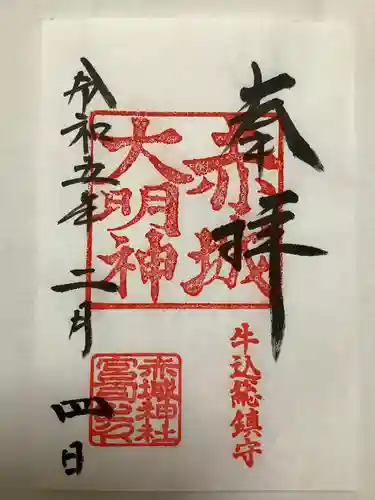 奉拝
赤城
大明神
牛込総鎮守
赤城神社
令和五年二月四日